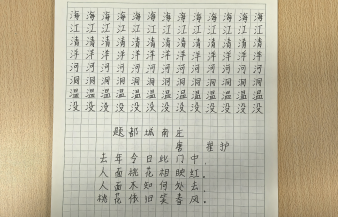 海海海海海海海海海海海海
江江江江江江江江江江江江
清清清清清清清清清清清清
洋洋洋洋洋洋洋洋洋洋洋洋
河河河河河河河河河河河河
洞洞洞洞洞洞洞洞洞洞洞洞
温温温温温温温温温温温温
没没没没没没没没没没没没
题都城南庄
唐 崔护
去年今日此门中，
人面桃花相映红。
人面不知何处去，
桃花依旧笑春风。